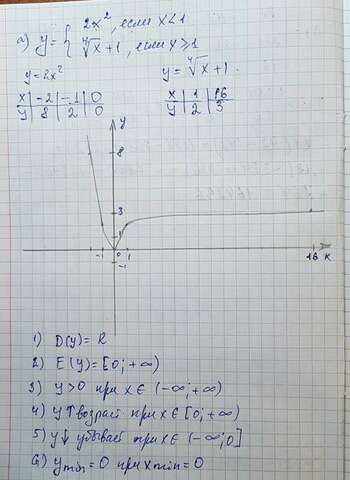 а) y = { 2x², если x<1
∜x + 1, если x⩾1
y = 2x²
y = ∜x + 1
x | -2 | -1 | 0
y | 8 | 2 | 0
x | 1 | 16
y | 2 | 3
y
8
3
1
-1 0 1 16 x
-1
1) D(y) = R
2) E(y) = [0; +∞)
3) y>0 при x∈ (-∞; +∞)
4) y↑ возраст при x∈ [0; +∞)
5) y↓ убывает при x∈ (-∞; 0]
6) y min = 0 при x min = 0